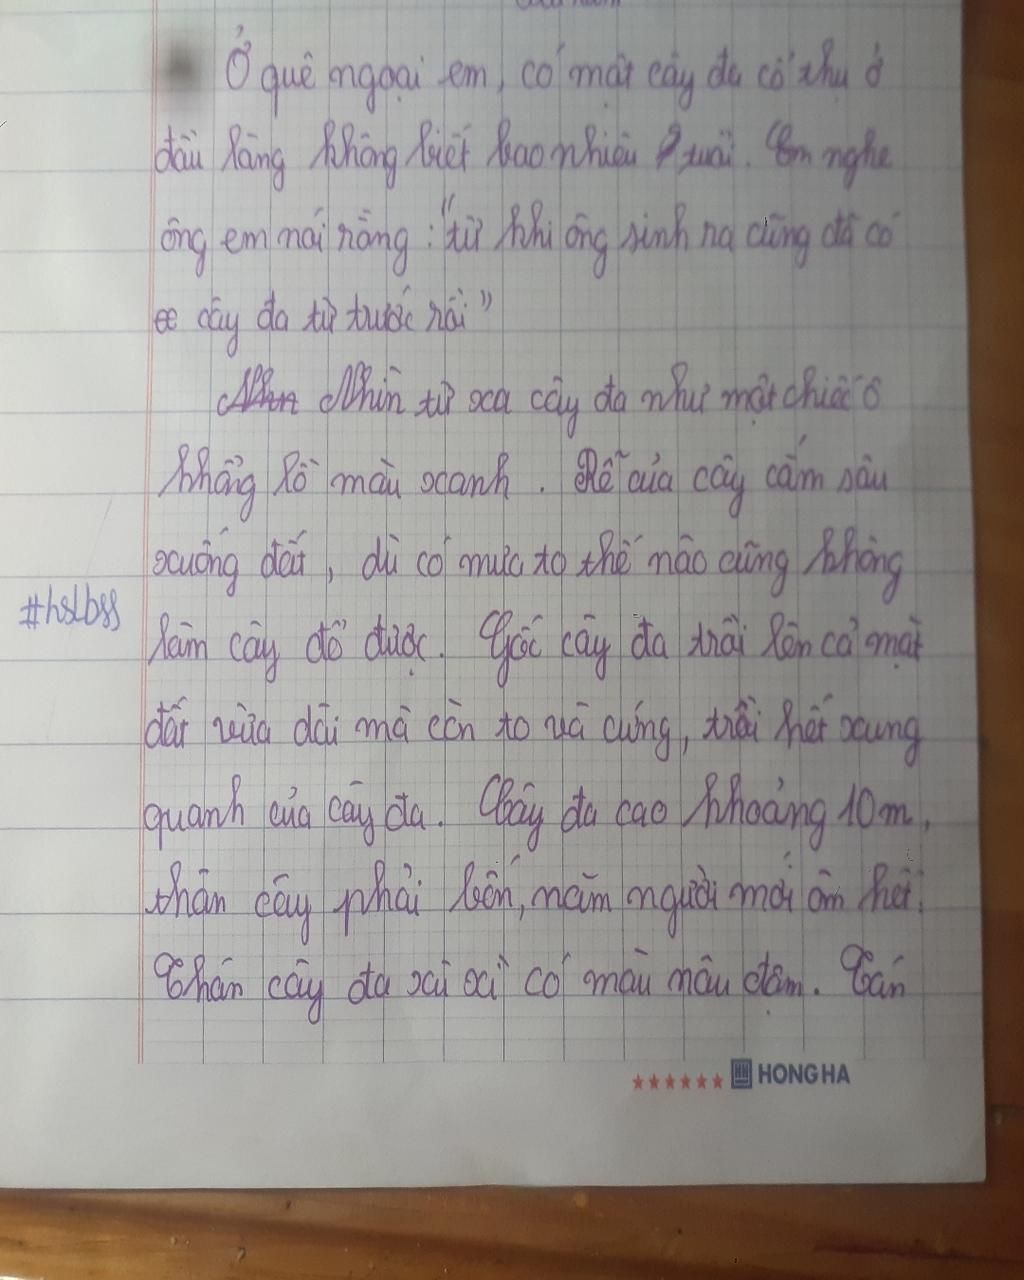 Ở quê ngoại em, có một cây đa cổ thụ ở
đầu làng không biết bao nhiêu tuổi. Em nghe
ông em nói rằng: "từ khi ông sinh ra cũng đã có
cây đa từ trước rồi"
Nhìn từ xa cây đa như một chiếc ô
khổng lồ màu xanh. Rễ của cây cắm sâu
xuống đất, dù có mưa to thế nào cũng không
#hslbss
làm cây đổ được. Gốc cây đa trồi lên cả mặt
đất vừa dài mà còn to và cứng, trồi hết xung
quanh của cây đa. Cây đa cao khoảng 10m,
thân cây phải bốn, năm người mới ôm hết.
Thân cây đa xù xì có màu nâu đậm. Tán
HONG HA